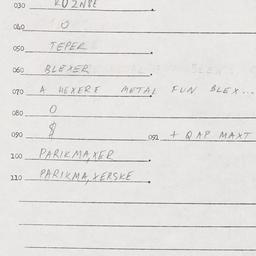 030 KUZNРE
040 O
050 TEPER
060 BLEXER
070 A HEXERE METAL FUN BLEX...
080 O
090 $ 091 + QAP MAXT
100 PARIKMA,XER
110 PARIKMA,XERSKE